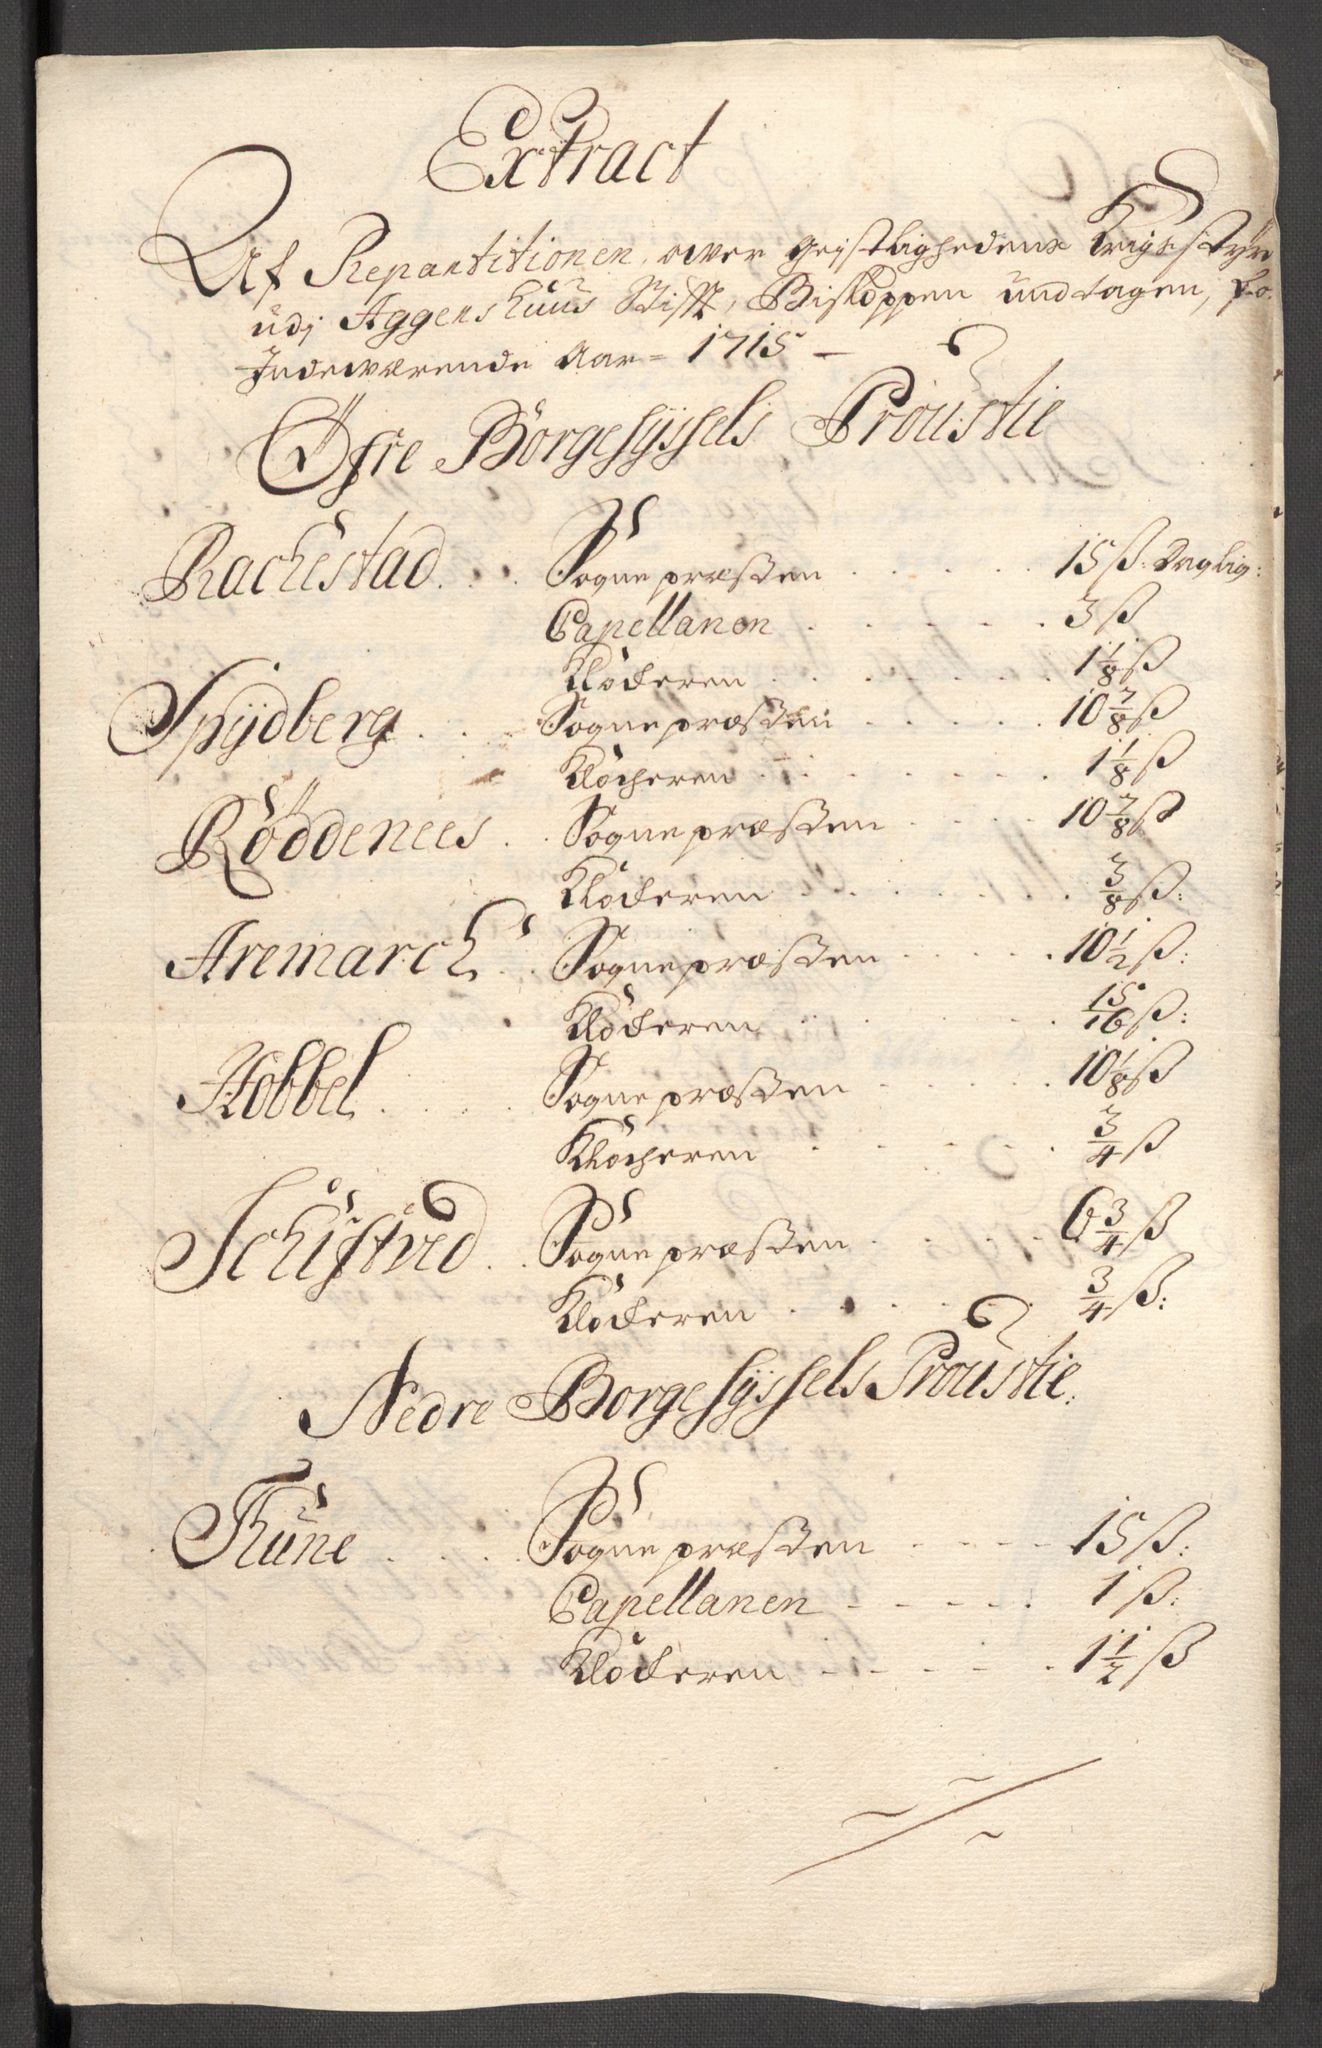 Extract
Af Repartitionen over Geistlighedens Krigsstyr
udj Aggershuus Stifft, Biskoppen undtagen, for
Indeværende Aar = 1715 -
Öfre Borgesyssels Proustie
Rachestad . . . Sognepræsten . . . . . 15 ß: Daglig:
Capellanen . . . . . 3 ß
Klockeren . . . . . 1 1/8 ß
Spydberg . . . Sognepræsten . . . . 10 7/8 ß
Klöcheren . . . . . 1 1/8 ß
Röddenees . . Sognepræsten . . . . 10 7/8 ß
Klockeren . . . . . 3/8 ß:
Aremarch . . Sognepræsten . . . . . 10 1/2 ß:
Klockeren . . . . . 15/16 ß:
Hobbel . . . . Sognepræsten . . . . . 10 1/8 ß
Klöcheren . . . . . 3/4 ß
Schiftved . . Sognepræsten . . . . . 6 3/4 ß
Klockeren . . . . . 3/4 ß:
Nedre Borgesyssels Proustie.
Thune . . . . Sognepræsten - - - - 15 ß:
Capellanen - - - - - . 1 ß:
Klockeren - - - - - . 1 1/2 ß